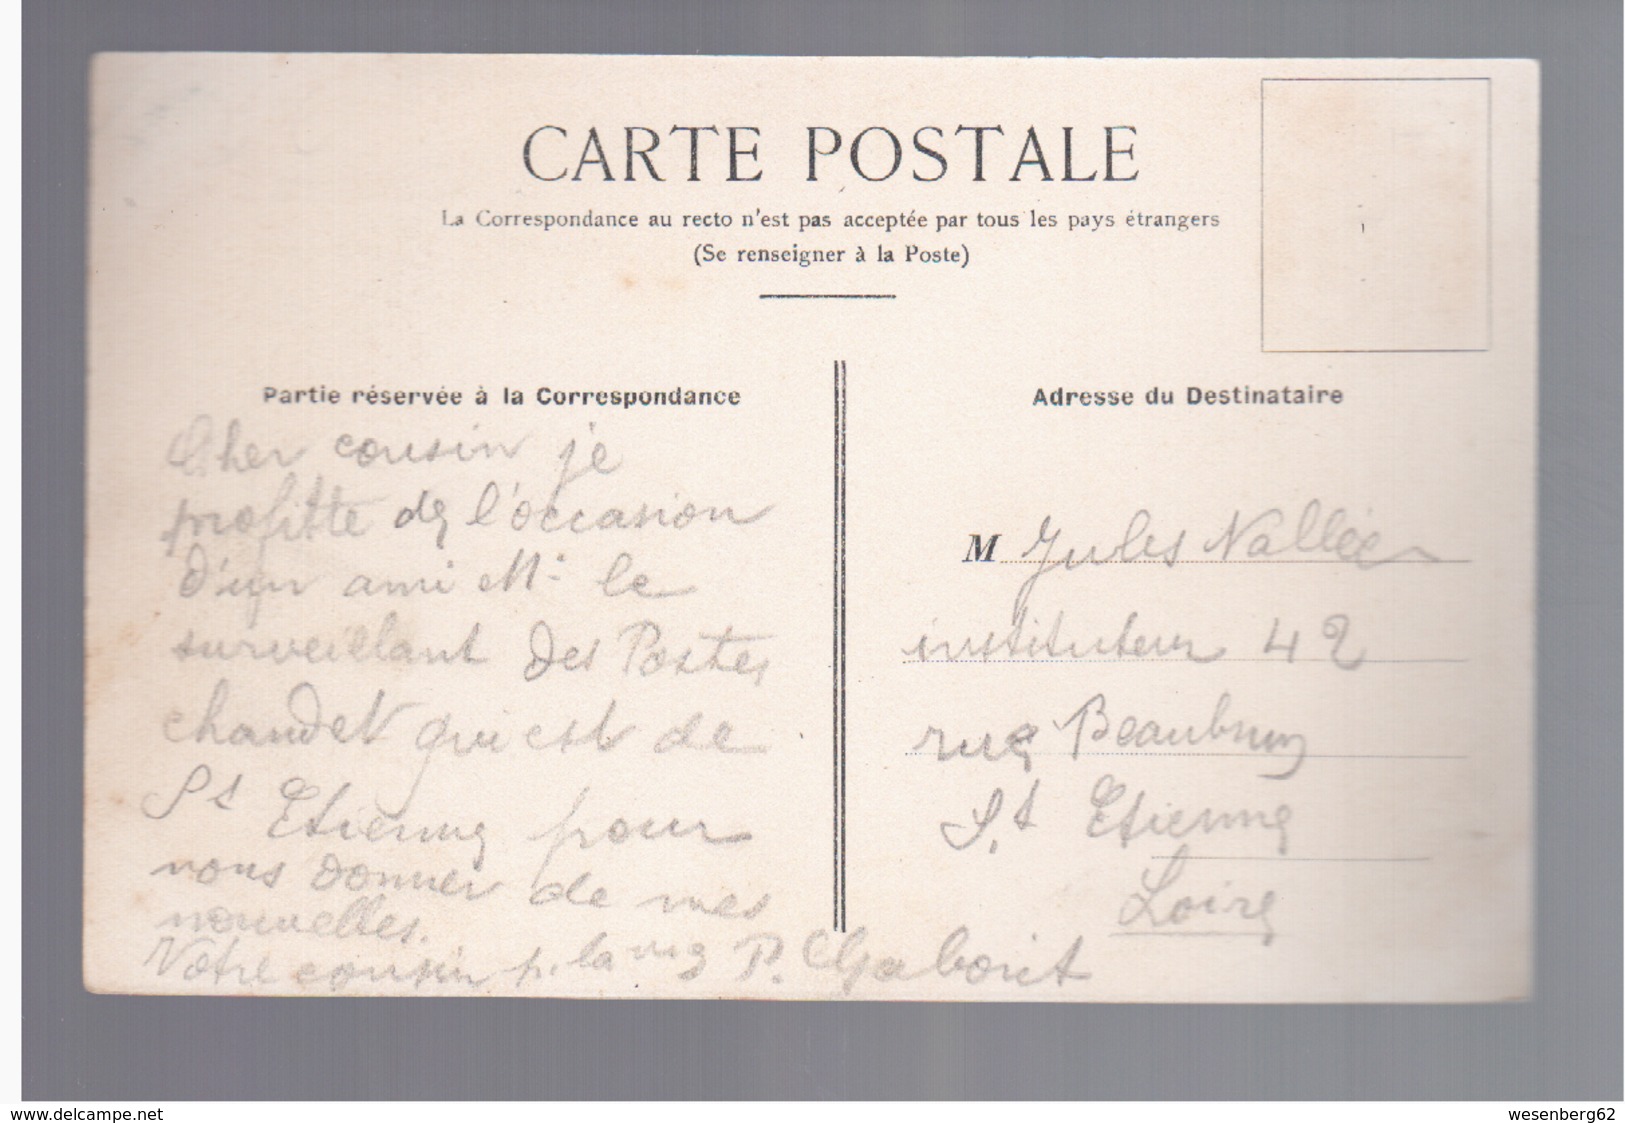 CARTE POSTALE
La Correspondance au recto n'est pas acceptée par tous les pays étrangers
(Se renseigner à la Poste)
Partie réservée à la Correspondance
Cher cousin je
profitte de l'occasion
d'un ami Mr le
surveillant des Postes
chaudet qui est de
St Etienne pour
vous donner de mes
nouvelles.
Votre cousin p. la vie P. Gaborit
Adresse du Destinataire
M Jules Vallée
instituteur 42
rue Beaubrun
St Etienne
Loire
www.delcampe.net
wesenberg62